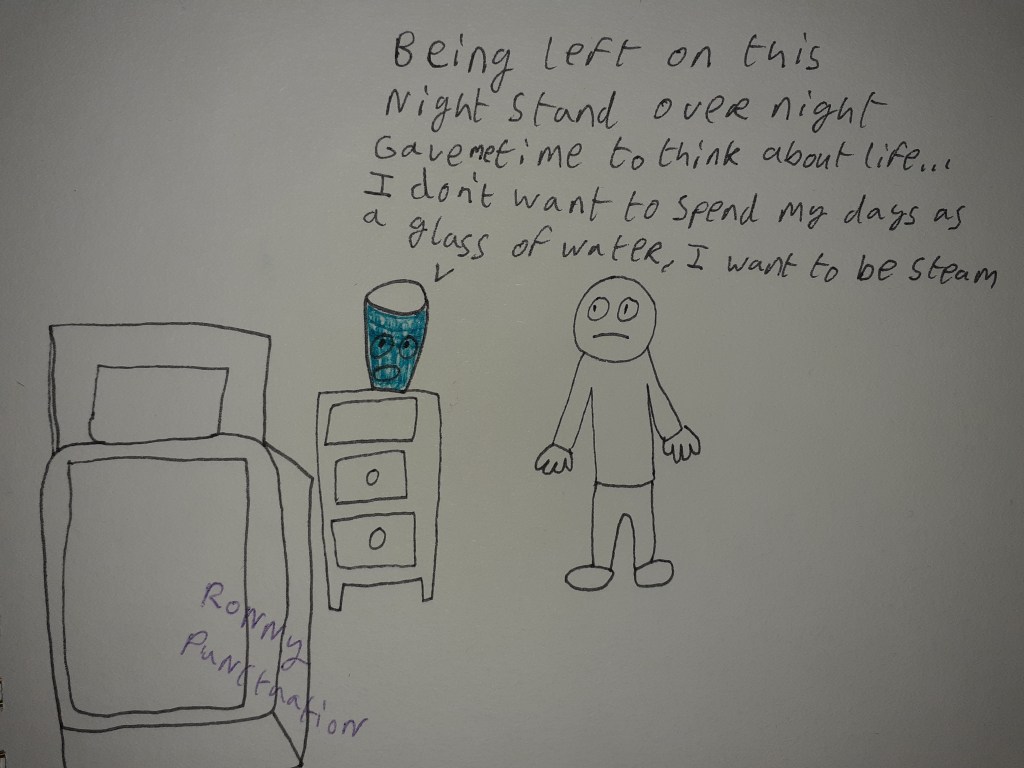 Being left on this
Night Stand over night
Gave me time to think about life...
I don't want to spend my days as
a glass of water, I want to be steam
Ronny
Punctuation